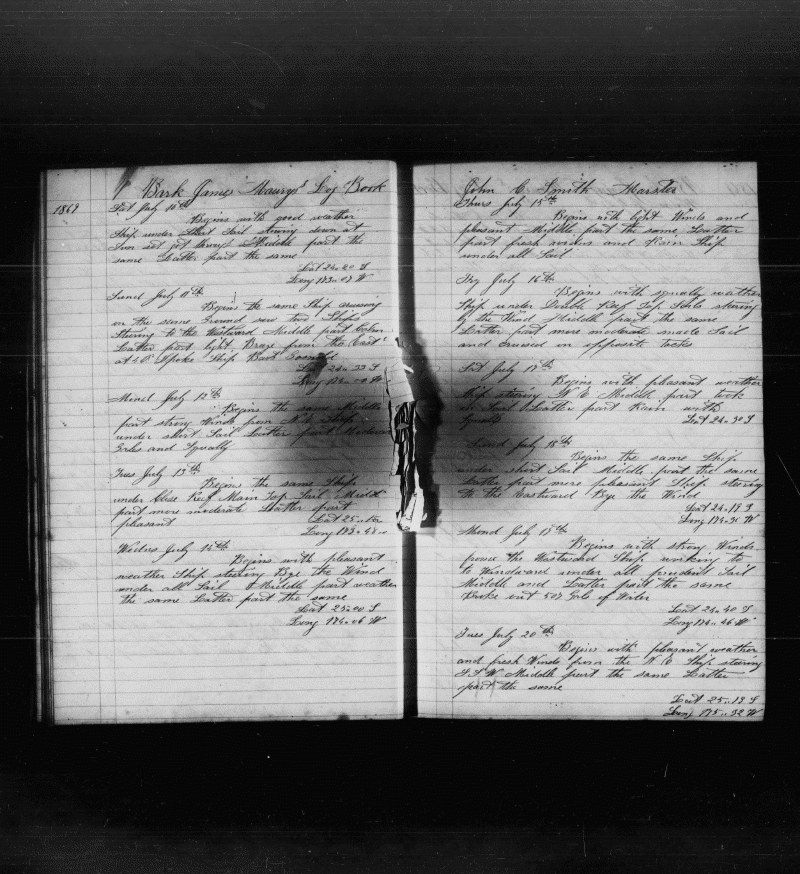 Bark James Maury's Log Book
1869
Sat July 10th
Begins with good weather
Ship under Short Sail stering down at
Sun set got Middle part the
same Latter part the same
Latt 24.. 20 S
Long 173.. 07 W
Sund July 11th
Begins the same Ship cruising
on the same Ground saw two Ships
Stering to the Westward Middle part Calm
Latter part light Braze from the East
at Spoke Ship Bart Gosnold
Latt 24.. 33 S
Long W
Mond July 12th
Begins the same Middle
part strong Winds from Ship
under short Sail Latter part Moderate
and Squally
Tues July 13th
Begins the same Ship
under Close Reef Main top Sail Middle
part more moderate Latter part
pleasant
Latt 25..
Long 173.. 48..
Wednes July 14th
Begins with pleasant
weather Ship steering Bye the Wind
under all Sail Middle part weather
the same Latter part the same
Latt 25.. 00 S
Long 174.. 06 W
John C. Smith Marster
Thurs july 15th
Begins with light Winds and
pleasant Middle part the same Latter
part fresh and Rain Ship
under all Sail
Fry July 16th
Begins with squaly weather
Ship under Double Reef Top Sails stering
by the Wind Middle part the same
Latter part more moderate made Sail
and cruised on opposite tacks
Sat July 17th
Begins with pleasant weather
Ship stering N E Middle part took
in Sail Latter part Rain with
Squalls
Latt 24.. 30 S
Sund july 18th
Begins the same Ship
under short Sail Middle part the same
Latter part more pleasant Ship stering
to the Eastward Bye the Wind
Latt 24.. 19 S
Long 174.. W
Mond July 19th
Begins with strong Winds
from the Wastward Ship working to
to Windward under all prudent Sail
Middle and Latter part the same
Broke out 507 Gals of Water
Latt 24.. 40 S
Long 174.. 46 W
Tues July 20th
Begins with pleasant weather
and fresh Winds from the N E Ship stering
S S W Middle part the same Latter
part the same
Latt 25.. 19 S
Long 175.. 32 W